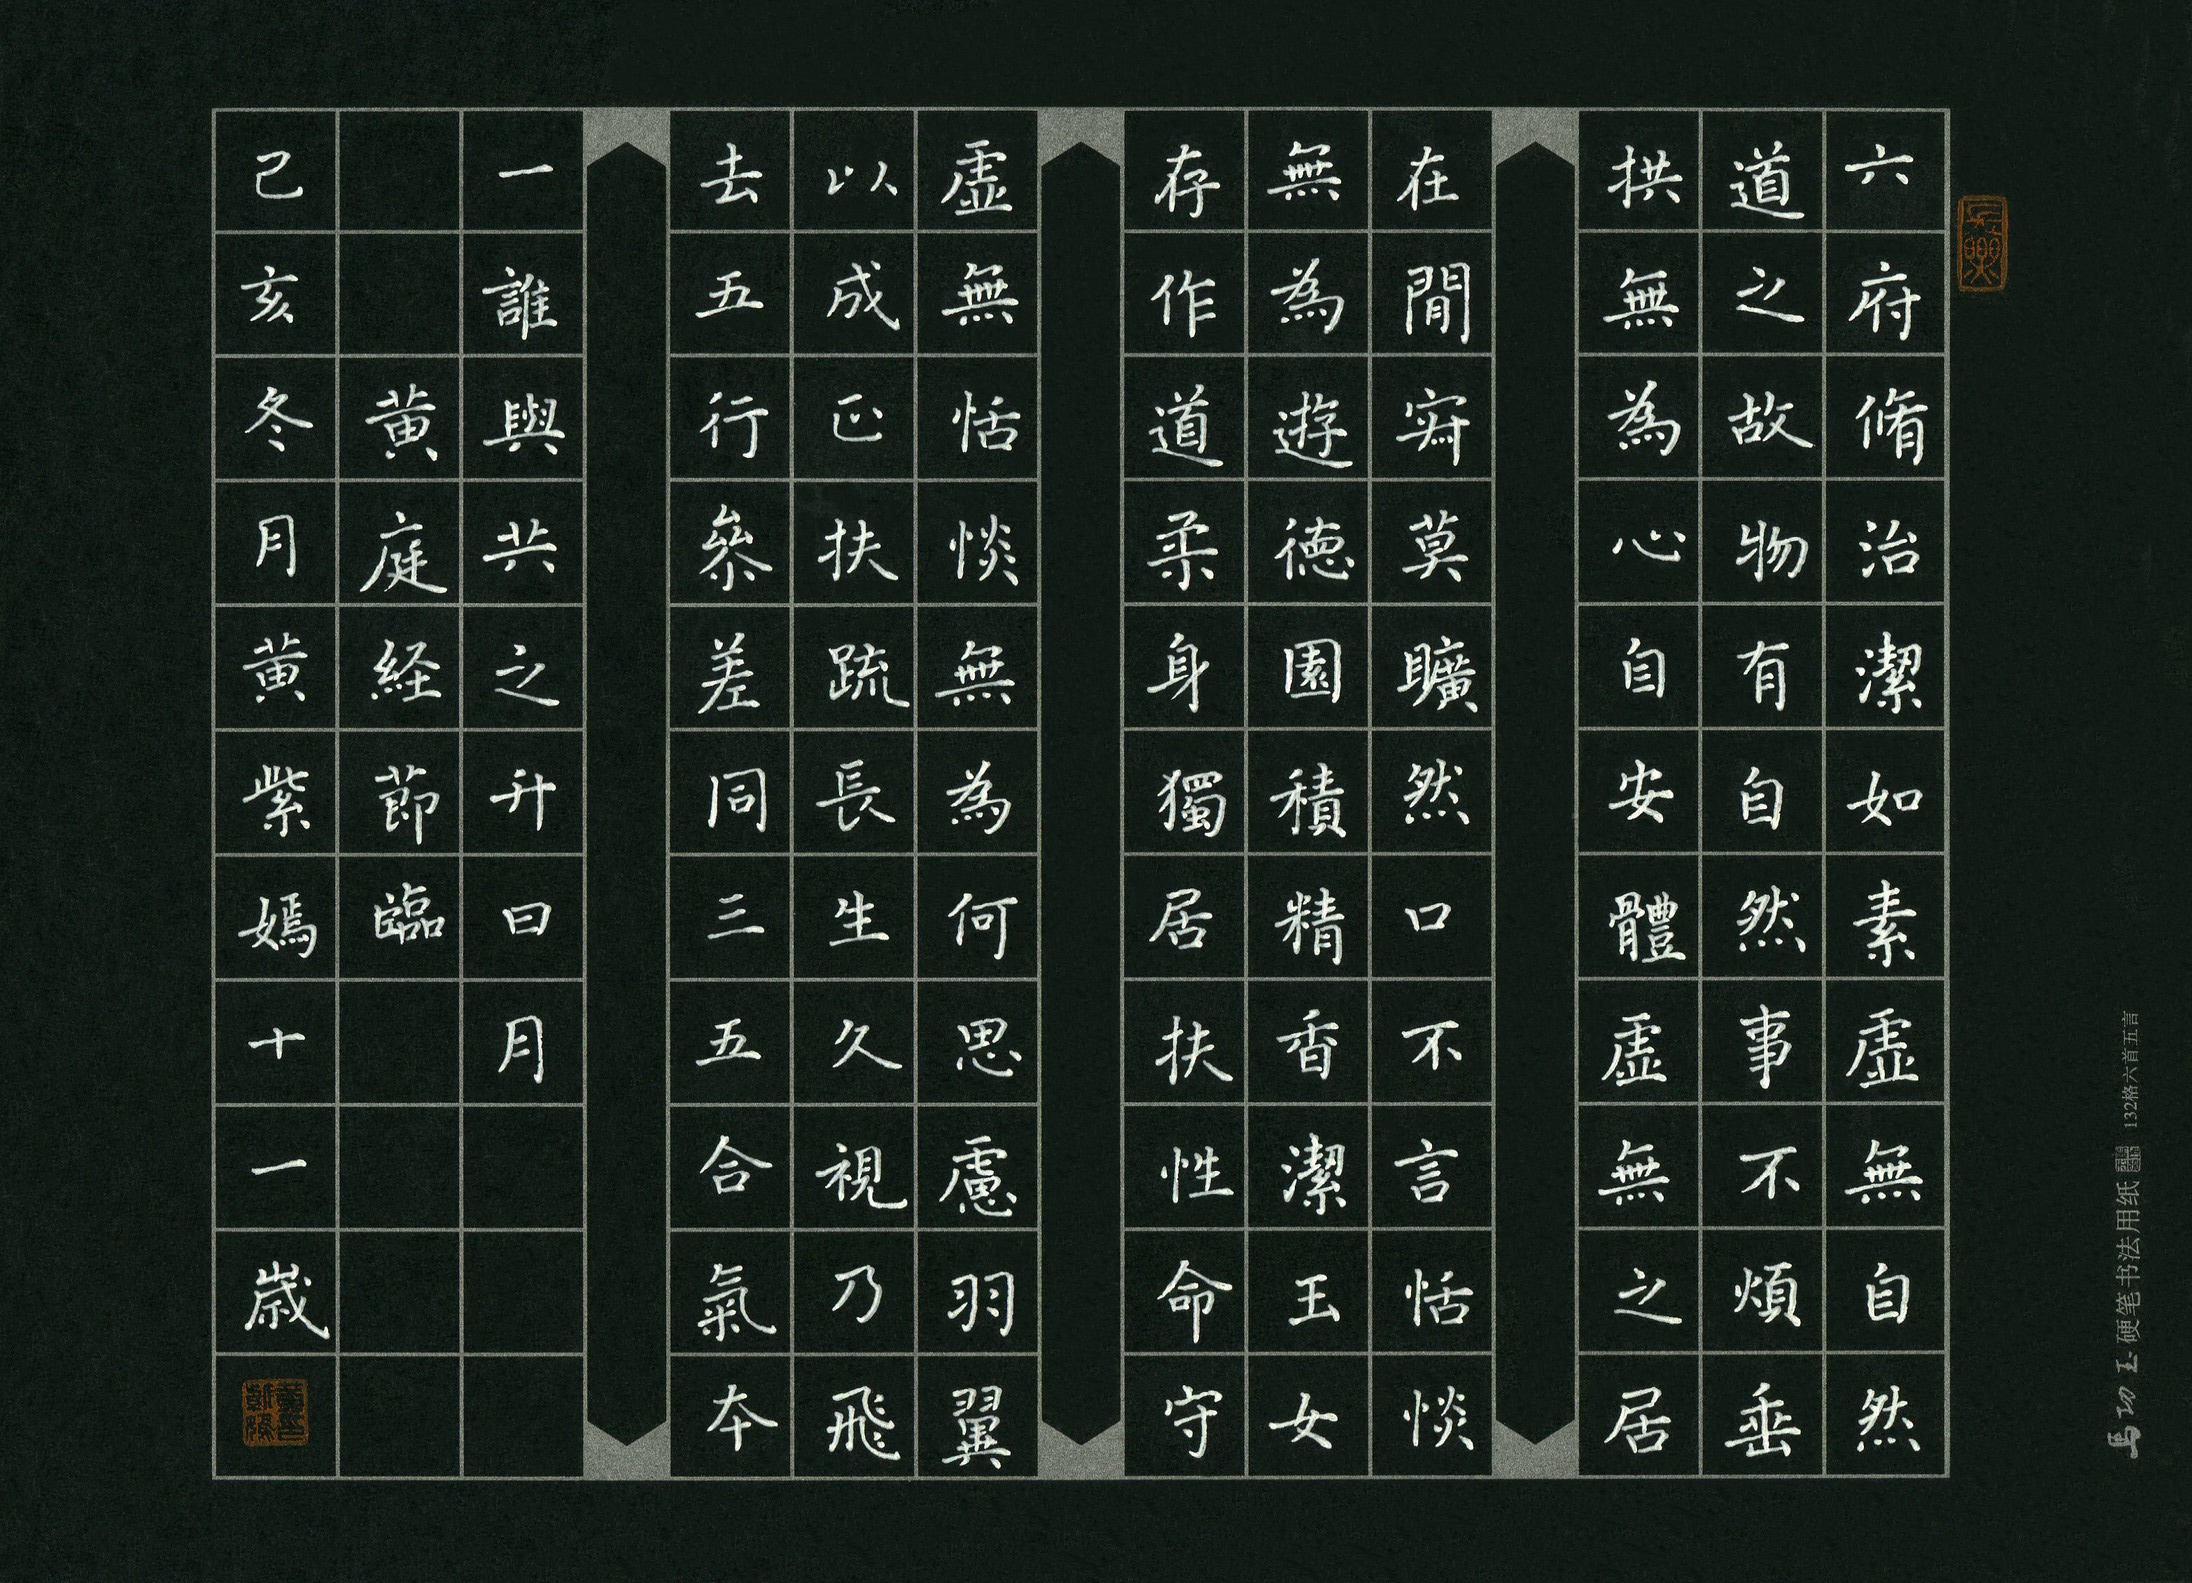 六府脩治潔如素虛無自然
道之故物有自然事不煩垂
拱無為心自安體虛無之居
在閒寂莫曠然口不言恬惔
無為遊德園積精香潔玉女
存作道柔身獨居扶性命守
虛無恬惔無為何思慮羽翼
以成正扶疏長生久視乃飛
去五行參差同三五合氣本
一誰與共之升日月
黃庭経節臨
己亥冬月黃紫嫣十一歲
長樂
马功玉 硬笔书法用纸 132格六首五言